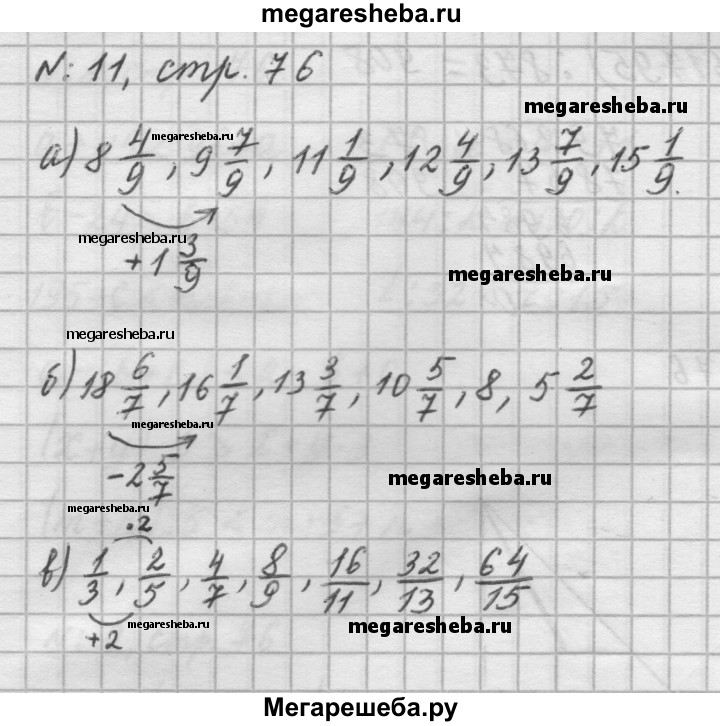 megaresheba.ru
№ 11, стр. 76
megaresheba.ru
megaresheba.ru
а) 8 4/9, 9 7/9, 11 1/9, 12 4/9, 13 7/9, 15 1/9.
megaresheba.ru
+1 3/9
megaresheba.ru
megaresheba.ru
б) 18 6/7, 16 1/7, 13 3/7, 10 5/7, 8, 5 2/7
megaresheba.ru
-2 5/7
megaresheba.ru
megaresheba.ru
·2
в) 1/3, 2/5, 4/7, 8/9, 16/11, 32/13, 64/15
+2
megaresheba.ru
megaresheba.ru
Мегарешеба.ру